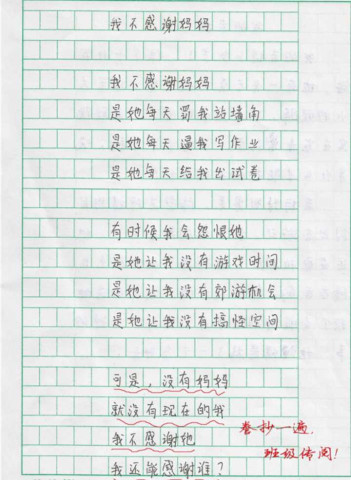 我不感谢妈妈
我不感谢妈妈
是她每天罚我站墙角
是她每天逼我写作业
是她每天给我出试卷
有时候我会怨恨她
是她让我没有游戏时间
是她让我没有郊游机会
是她让我没有搞怪空间
可是，没有妈妈
就没有现在的我
我不感谢她
我还能感谢谁？
卷抄一遍，
班级传阅！